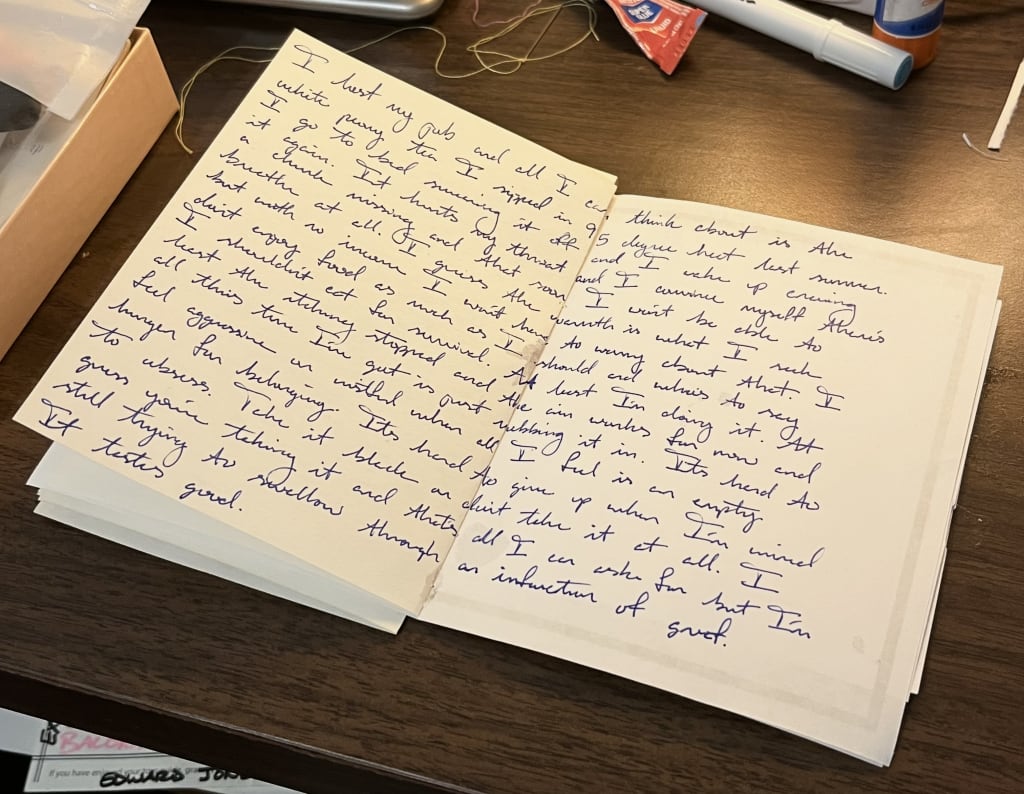 I lost my job and all I can think about is the
white peony tea I sipped in 95 degree heat last summer.
I go to bed swearing it off and I wake up craving
it again. It hurts my throat and I convince myself there's
a chunk missing and that soon I won't be able to
breathe at all. I guess the warmth is what I seek
but with no income I won't have to worry about that. I
don't enjoy food as much as I should and who's to say
I shouldn't eat for survival. At least I'm doing it. At
least the itching stopped and the air works for now and
all this time I'm gut is just rubbing it in. Its hard to
feel aggressive or misled when all I feel is an empty
hunger for belonging. Its hard to give up when I'm wired
to obsess. Take it black or don't take it at all. I
guess you're taking it and thats all I can ask for but I'm
still trying to swallow through an infarction of grief.
It tastes good.
If you have
EDWARD